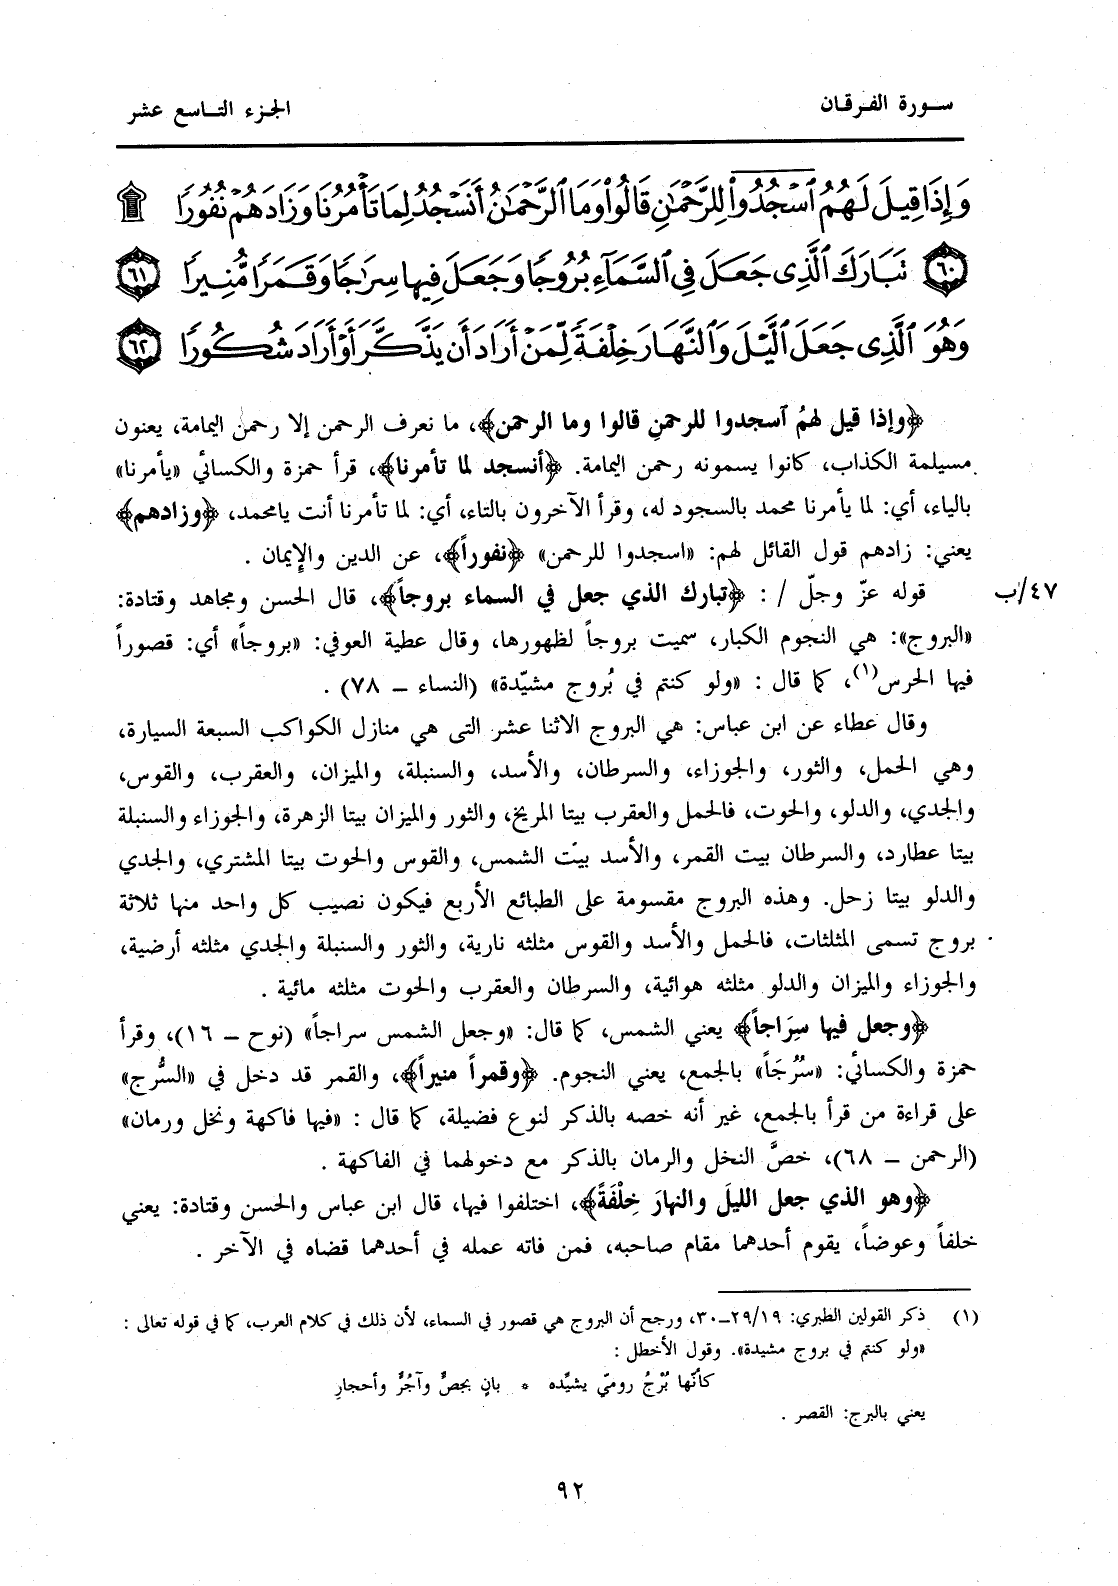 سورة الفرقان
الجزء التاسع عشر
وَإِذَا قِيلَ لَهُمُ ٱسْجُدُوا۟ لِلرَّحْمَٰنِ قَالُوا۟ وَمَا ٱلرَّحْمَٰنُ أَنَسْجُدُ لِمَا تَأْمُرُنَا وَزَادَهُمْ نُفُورًا ۩
٦٠ تَبَارَكَ ٱلَّذِى جَعَلَ فِى ٱلسَّمَآءِ بُرُوجًا وَجَعَلَ فِيهَا سِرَٰجًا وَقَمَرًا مُّنِيرًا ٦١
وَهُوَ ٱلَّذِى جَعَلَ ٱلَّيْلَ وَٱلنَّهَارَ خِلْفَةً لِّمَنْ أَرَادَ أَن يَذَّكَّرَ أَوْ أَرَادَ شُكُورًا ٦٢
﴿وإذا قيل لهمُ ٱسجدوا للرحمنِ قالوا وما الرحمن﴾، ما نعرف الرحمن إلا رحمن اليمامة، يعنون
مسيلمة الكذاب، كانوا يسمونه رحمن اليمامة. ﴿أنسجد لما تأمرنا﴾، قرأ حمزة والكسائي «يأمرنا»
بالياء، أي: لما يأمرنا محمد بالسجود له، وقرأ الآخرون بالتاء، أي: لما تأمرنا أنت يامحمد، ﴿وزادهم﴾
يعني: زادهم قول القائل لهم: «اسجدوا للرحمن» ﴿نفوراً﴾، عن الدين والإيمان .
٤٧/ب
قوله عزّ وجلّ / : ﴿تبارك الذي جعل في السماء بروجاً﴾، قال الحسن ومجاهد وقتادة:
«البروج»: هي النجوم الكبار، سميت بروجاً لظهورها، وقال عطية العوفي: «بروجاً» أي: قصوراً
فيها الحرس(١)، كما قال : «ولو كنتم في بُروج مشيّدة» (النساء ــ ٧٨) .
وقال عطاء عن ابن عباس: هي البروج الاثنا عشر التى هي منازل الكواكب السبعة السيارة،
وهي الحمل، والثور، والجوزاء، والسرطان، والأسد، والسنبلة، والميزان، والعقرب، والقوس،
والجدي، والدلو، والحوت، فالحمل والعقرب بيتا المريخ، والثور والميزان بيتا الزهرة، والجوزاء والسنبلة
بيتا عطارد، والسرطان بيت القمر، والأسد بيت الشمس، والقوس والحوت بيتا المشتري، والجدي
والدلو بيتا زحل. وهذه البروج مقسومة على الطبائع الأربع فيكون نصيب كل واحد منها ثلاثة
بروج تسمى المثلثات، فالحمل والأسد والقوس مثلثه نارية، والثور والسنبلة والجدي مثلثه أرضية،
والجوزاء والميزان والدلو مثلثه هوائية، والسرطان والعقرب والحوت مثلثه مائية .
﴿وجعل فيها سِرَاجاً﴾ يعني الشمس، كما قال: «وجعل الشمس سراجاً» (نوح ــ ١٦)، وقرأ
حمزة والكسائي: «سُرُجَاً» بالجمع، يعني النجوم. ﴿وقمراً منيراً﴾، والقمر قد دخل في «السُّرج»
على قراءة من قرأ بالجمع، غير أنه خصه بالذكر لنوع فضيلة، كما قال : «فيها فاكهة ونخل ورمان»
(الرحمن ــ ٦٨)، خصَّ النخل والرمان بالذكر مع دخولهما في الفاكهة .
﴿وهو الذي جعل الليلَ والنهارَ خِلْفَةً﴾، اختلفوا فيها، قال ابن عباس والحسن وقتادة: يعني
خلفاً وعوضاً، يقوم أحدهما مقام صاحبه، فمن فاته عمله في أحدهما قضاه في الآخر .
(١) ذكر القولين الطبري: ٢٩/١٩ــ٣٠، ورجح أن البروج هي قصور في السماء، لأن ذلك في كلام العرب، كما في قوله تعالى :
«ولو كنتم في بروج مشيدة». وقول الأخطل :
كأنّها بُرْجُ روميّ يشيِّده * بانٍ بجصٍّ وآجُرٍّ وأحجارِ
يعني بالبرج: القصر .
٩٢